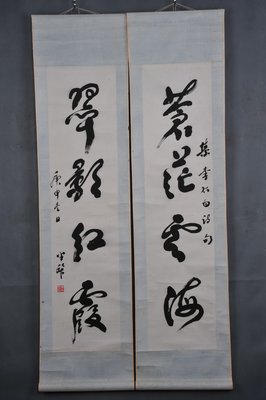 蒼茫雲海
集李太白詩句
翠影紅霞
庚申冬日